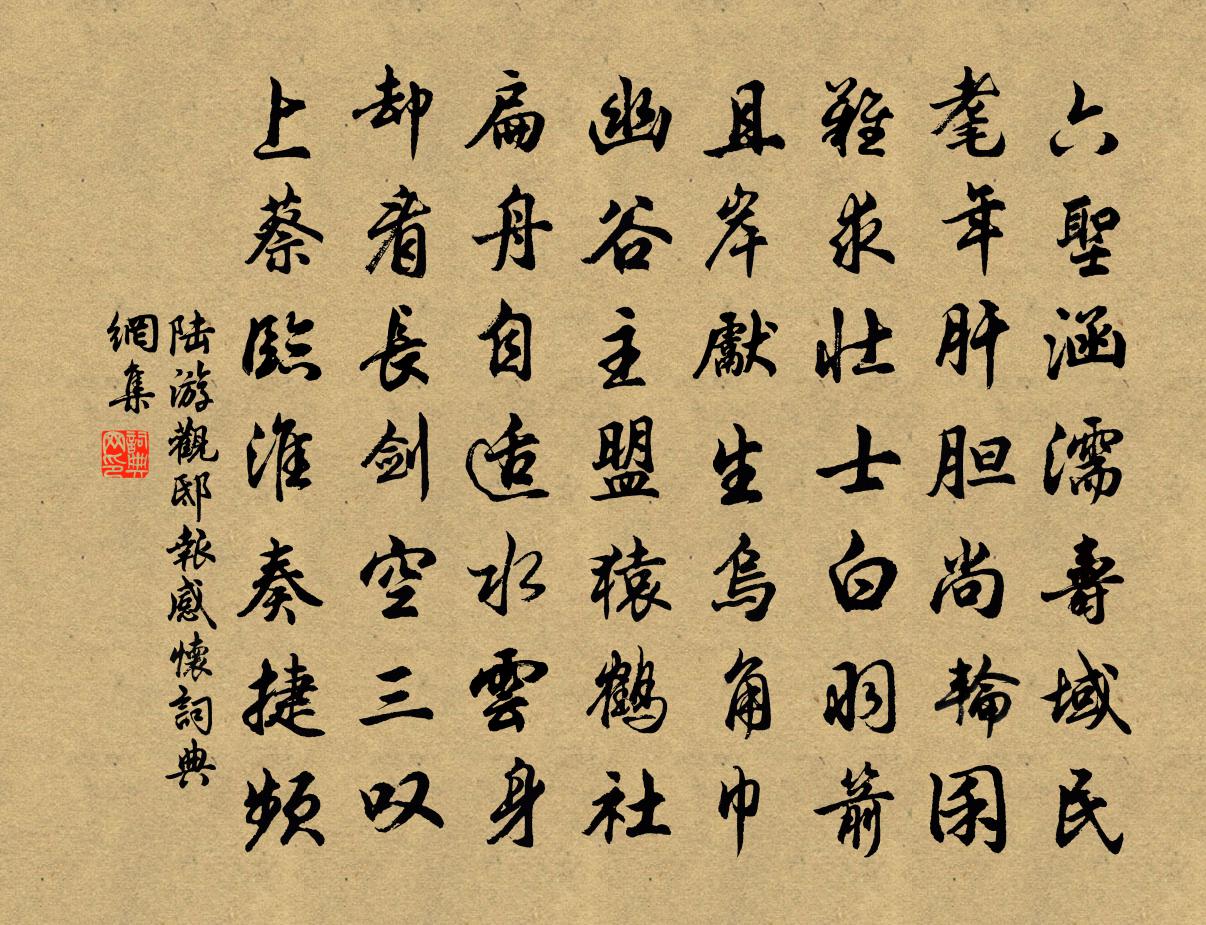 六聖涵濡壽域民
耄年肝胆尚輪囷
難求壯士白羽箭
且岸獻生烏角巾
幽谷主盟猿鶴社
扁舟自适水雲身
却看長剑空三叹
上蔡臨淮奏捷頻
陸游觀邸報感懷詞典
網集
詞典网印